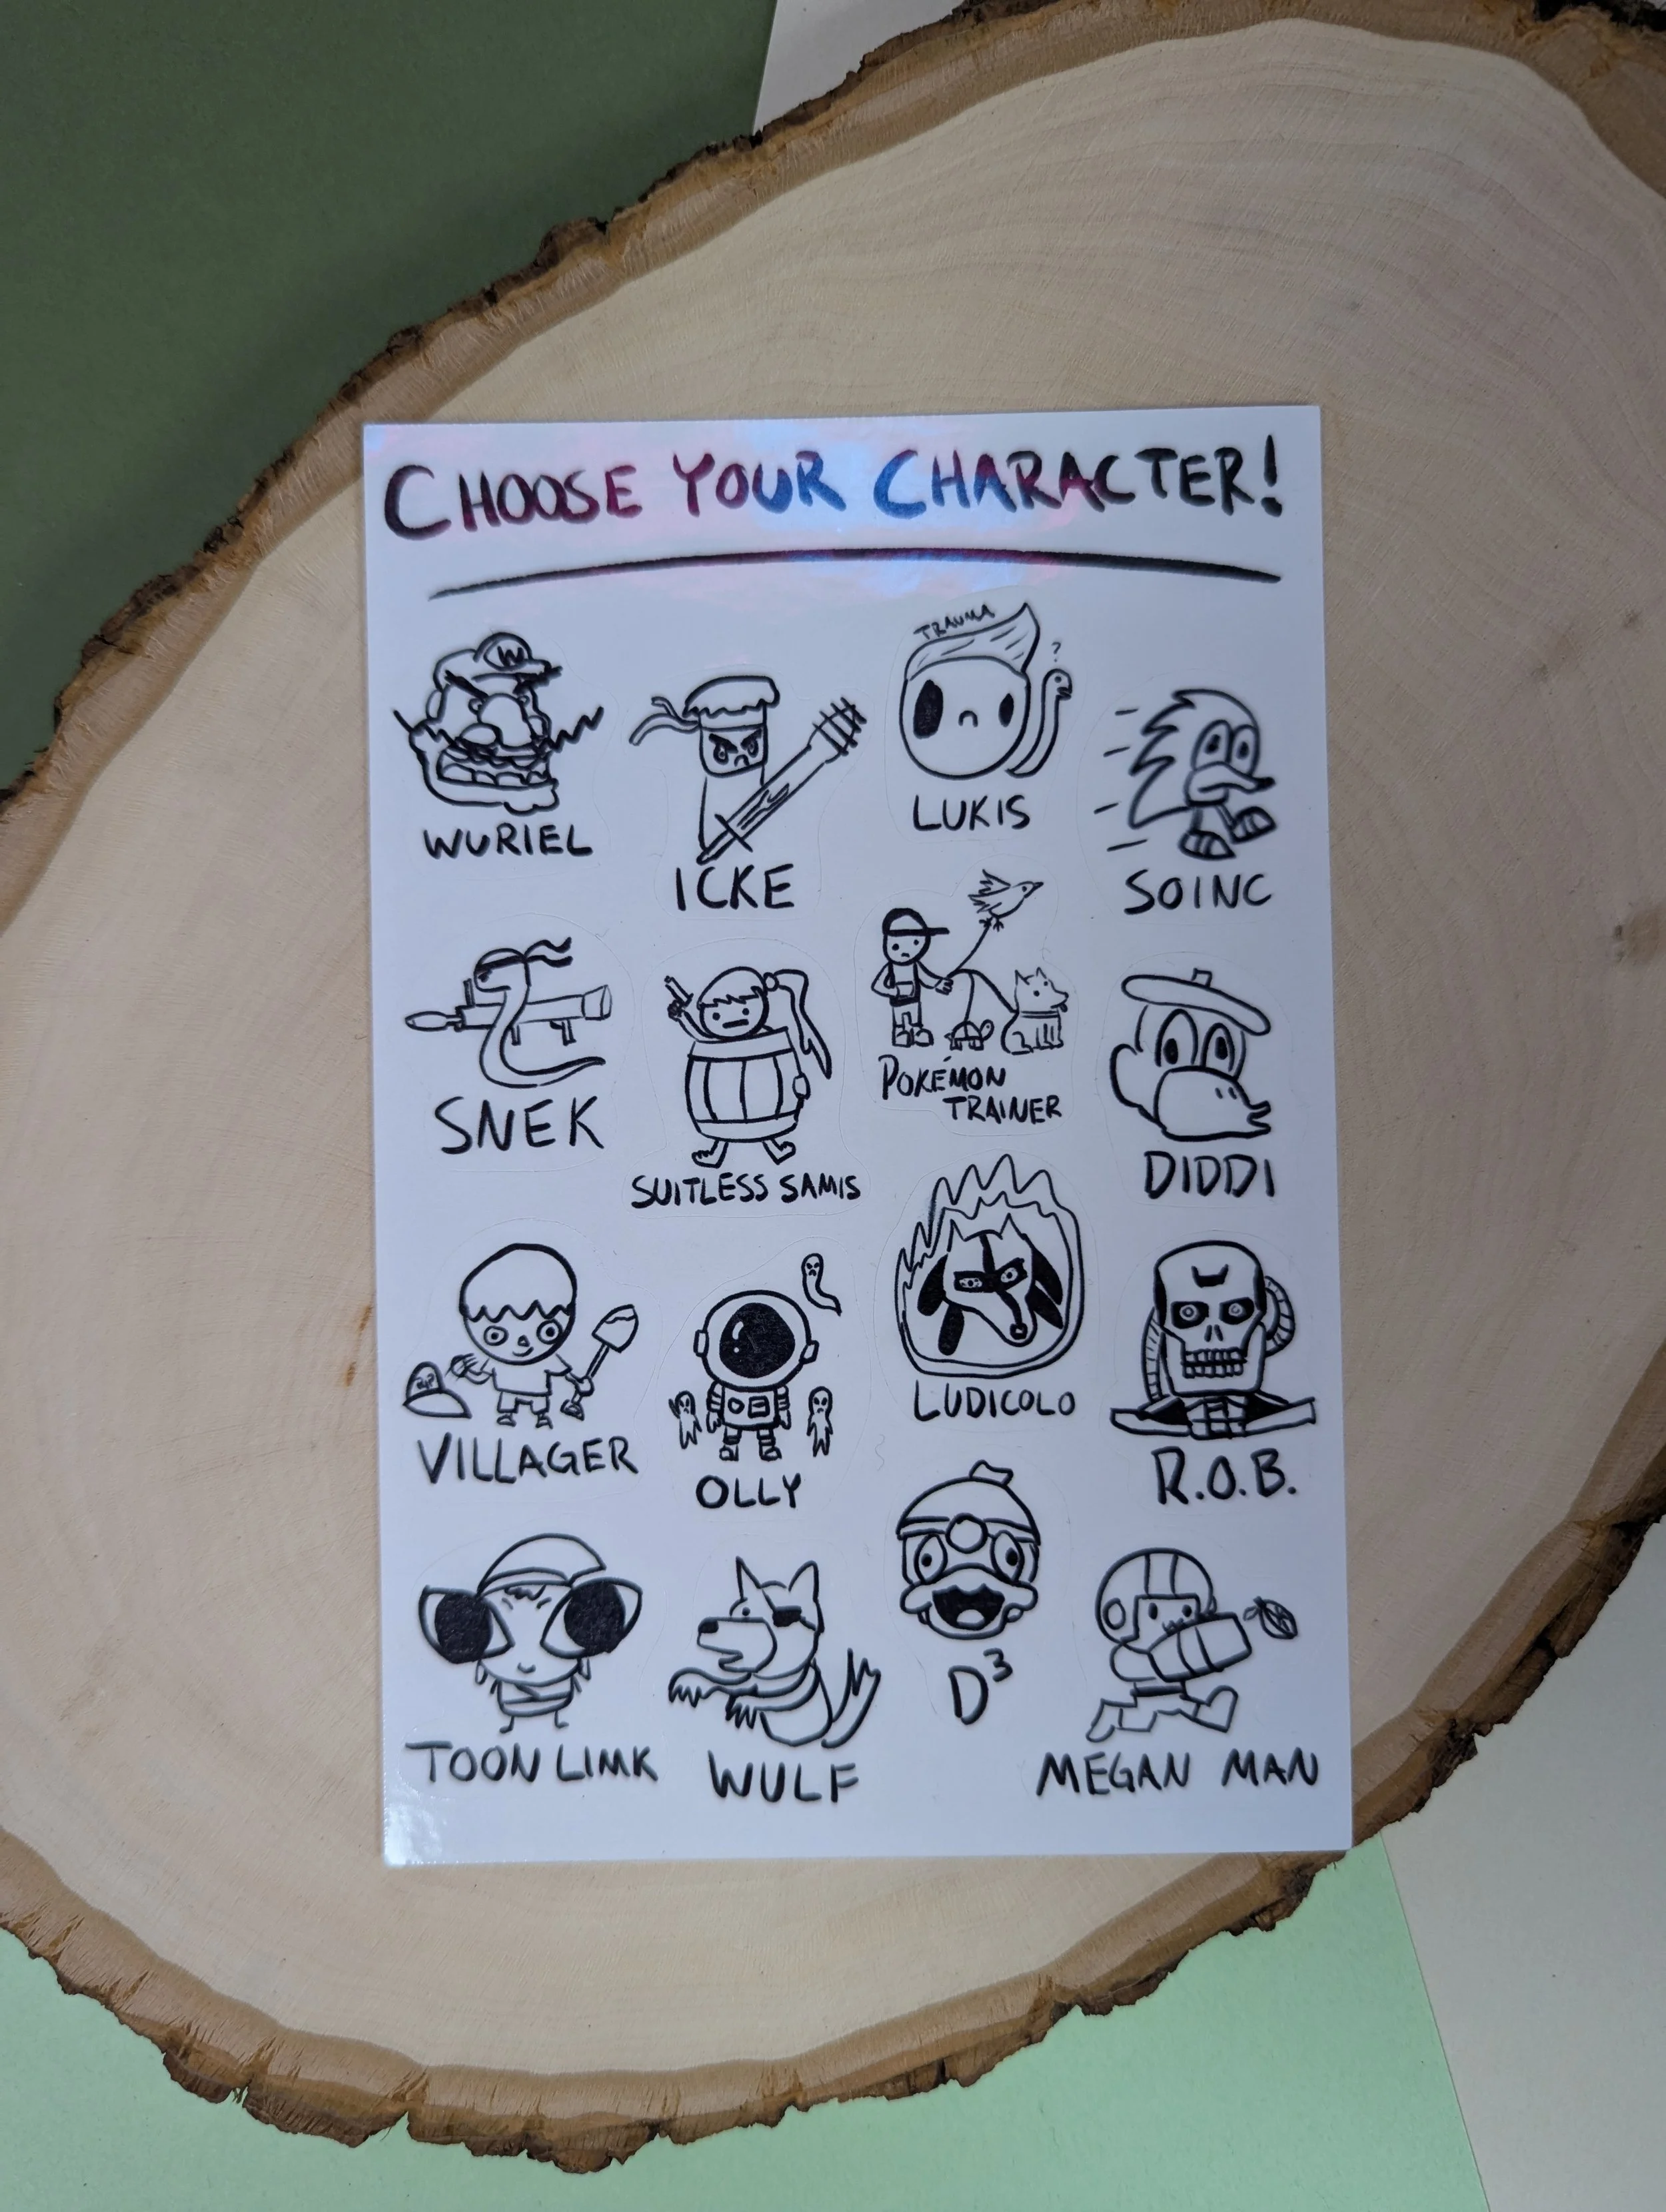 CHOOSE YOUR CHARACTER!
W
WURIEL
ICKE
TRAUMA
?
LUKIS
SOINC
SNEK
SUITLESS SAMIS
POKÉMON
TRAINER
DIDDI
VILLAGER
OLLY
LUDICOLO
R.O.B.
TOON LIMK
WULF
D³
MEGAN MAN